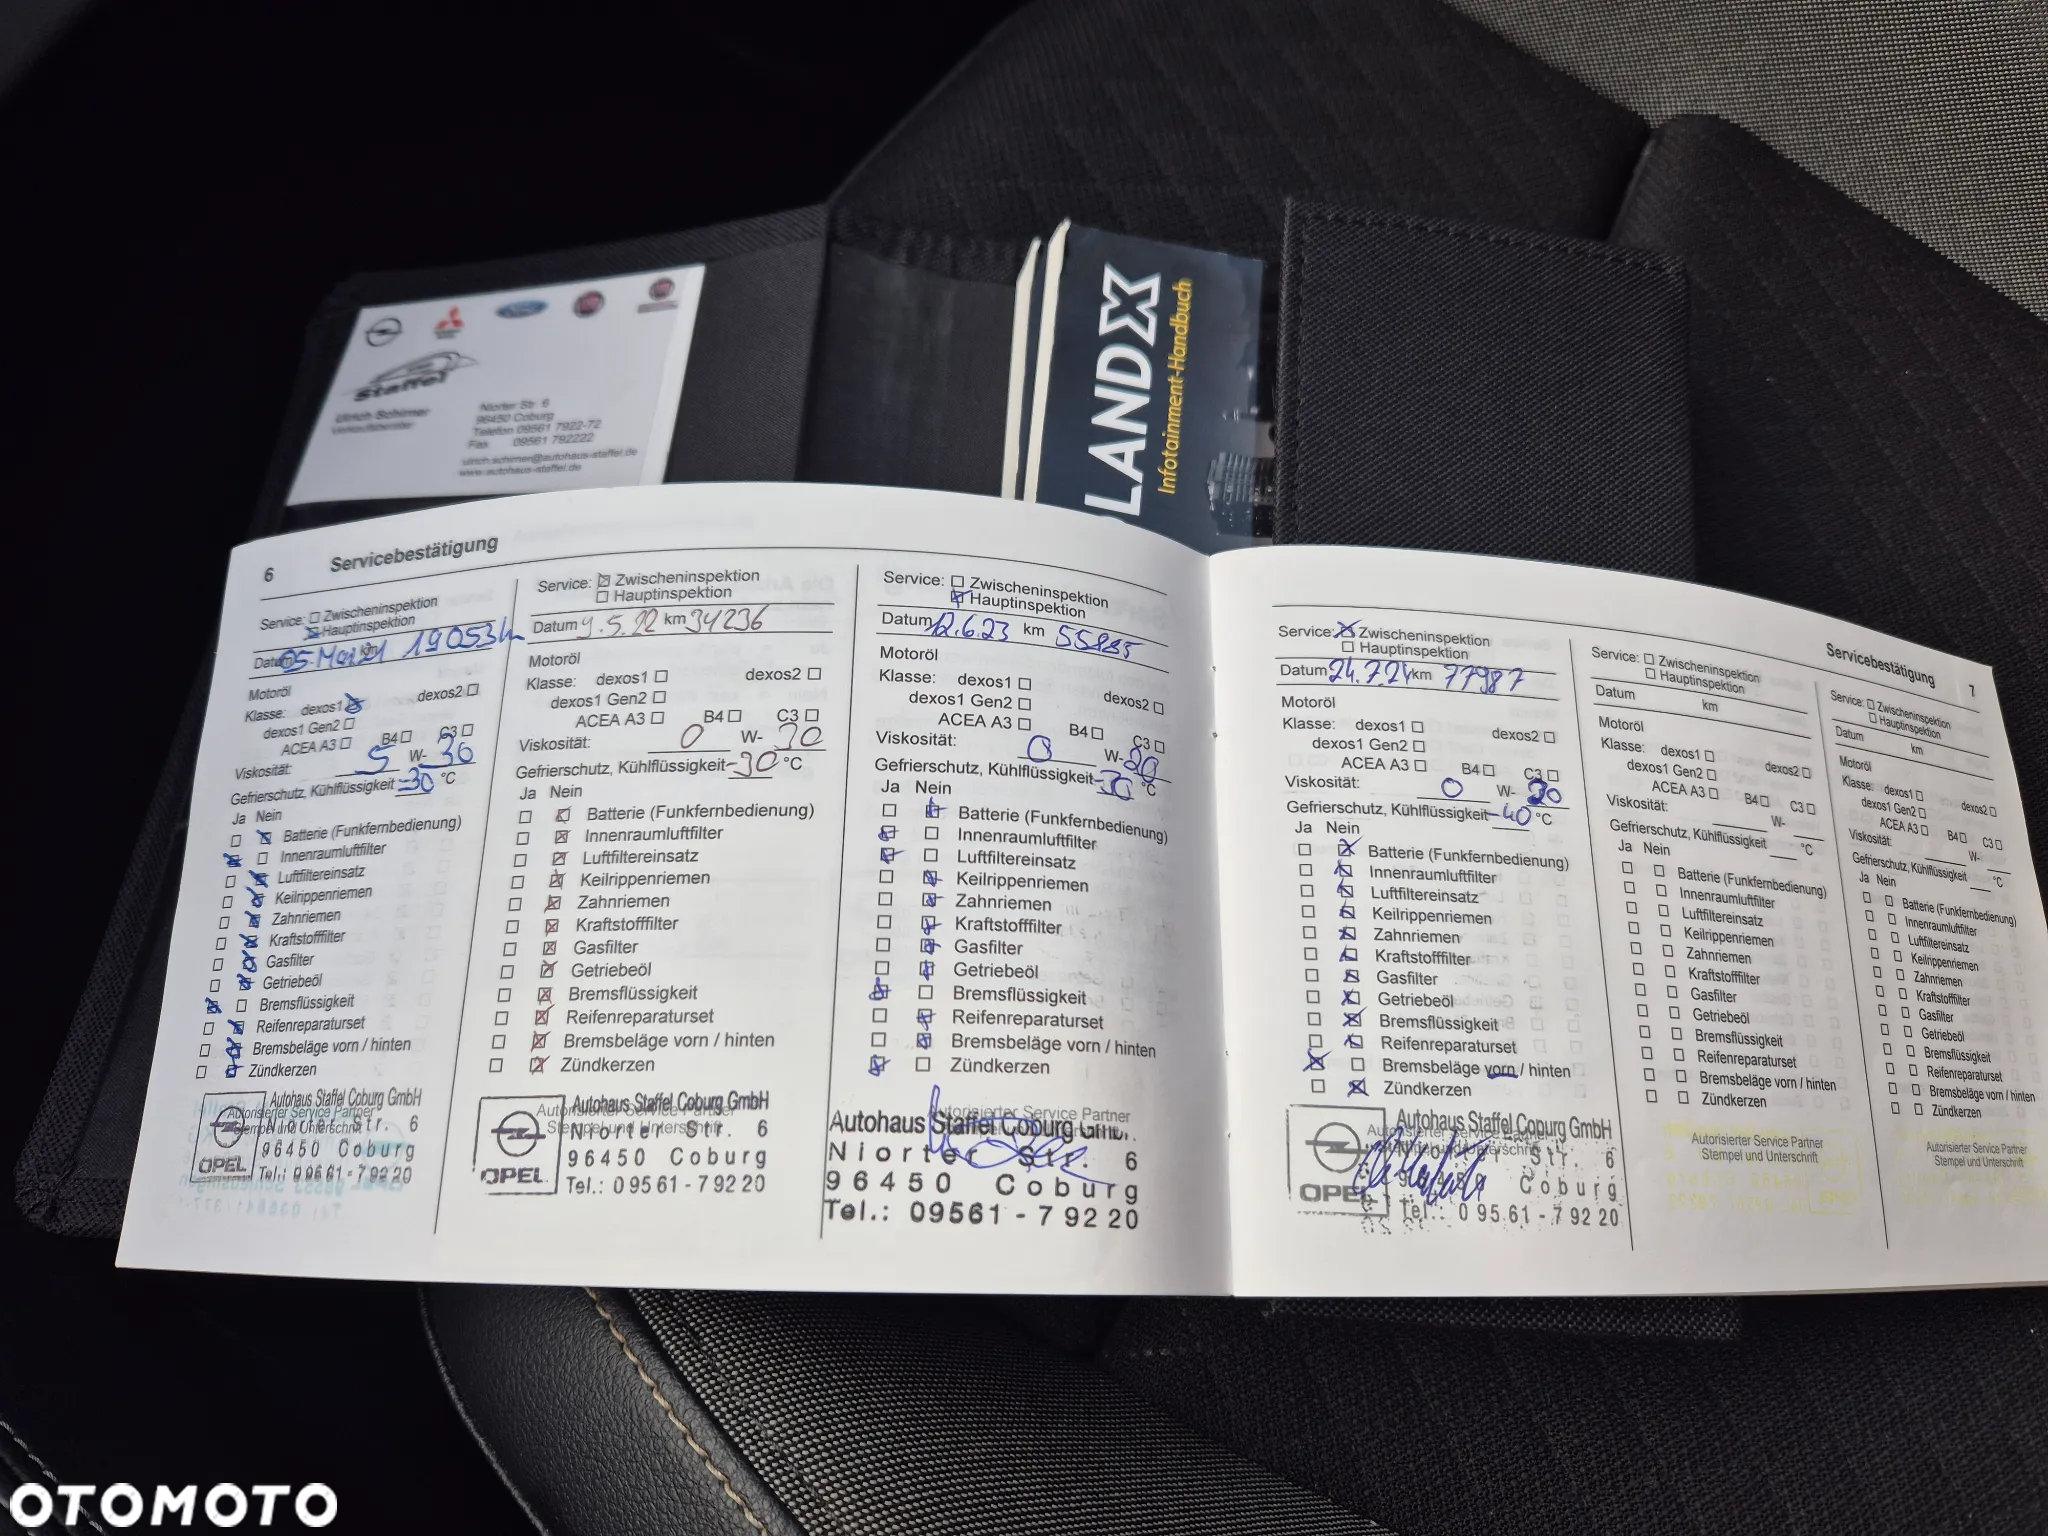 Ford
Staffel
Ulrich Schirmer
Verkaufsberater
Niorter Str. 6
96450 Coburg
Telefon 09561 7922-72
Fax 09561 792222
ulrich.schirmer@autohaus-staffel.de
www.autohaus-staffel.de
LAND X
Infotainment-Handbuch
6 Servicebestätigung
Service: Zwischeninspektion
Hauptinspektion
Datum 05. Mai 21 km 19053 km
Motoröl
Klasse: dexos1 dexos2
dexos1 Gen2
ACEA A3 B4 C3
Viskosität: 5 W- 30
Gefrierschutz, Kühlflüssigkeit -30 °C
Ja Nein
Batterie (Funkfernbedienung)
Innenraumluftfilter
Luftfiltereinsatz
Keilrippenriemen
Zahnriemen
Kraftstofffilter
Gasfilter
Getriebeöl
Bremsflüssigkeit
Reifenreparaturset
Bremsbeläge vorn / hinten
Zündkerzen
Autorisierter Service Partner
Stempel und Unterschrift
Autohaus Staffel Coburg GmbH
Niorter Str. 6
96450 Coburg
OPEL Tel.: 09561-79220
Service: Zwischeninspektion
Hauptinspektion
Datum 9.5.22 km 34236
Motoröl
Klasse: dexos1 dexos2
dexos1 Gen2
ACEA A3 B4 C3
Viskosität: 0 W- 30
Gefrierschutz, Kühlflüssigkeit -30 °C
Ja Nein
Batterie (Funkfernbedienung)
Innenraumluftfilter
Luftfiltereinsatz
Keilrippenriemen
Zahnriemen
Kraftstofffilter
Gasfilter
Getriebeöl
Bremsflüssigkeit
Reifenreparaturset
Bremsbeläge vorn / hinten
Zündkerzen
Autorisierter Service Partner
Stempel und Unterschrift
Autohaus Staffel Coburg GmbH
Niorter Str. 6
96450 Coburg
OPEL Tel.: 09561-79220
Service: Zwischeninspektion
Hauptinspektion
Datum 12.6.23 km
Motoröl
Klasse: dexos1 dexos2
dexos1 Gen2
ACEA A3 B4 C3
Viskosität: 0 W-
Gefrierschutz, Kühlflüssigkeit -30 °C
Ja Nein
Batterie (Funkfernbedienung)
Innenraumluftfilter
Luftfiltereinsatz
Keilrippenriemen
Zahnriemen
Kraftstofffilter
Gasfilter
Getriebeöl
Bremsflüssigkeit
Reifenreparaturset
Bremsbeläge vorn / hinten
Zündkerzen
Autorisierter Service Partner
Autohaus Staffel Coburg GmbH
Niorter Str. 6
96450 Coburg
Tel.: 09561-79220
Servicebestätigung 7
Service: Zwischeninspektion
Hauptinspektion
Datum 24.7.24 km 77987
Motoröl
Klasse: dexos1 dexos2
dexos1 Gen2
ACEA A3 B4 C3
Viskosität: 0 W- 20
Gefrierschutz, Kühlflüssigkeit -40 °C
Ja Nein
Batterie (Funkfernbedienung)
Innenraumluftfilter
Luftfiltereinsatz
Keilrippenriemen
Zahnriemen
Kraftstofffilter
Gasfilter
Getriebeöl
Bremsflüssigkeit
Reifenreparaturset
Bremsbeläge vorn / hinten
Zündkerzen
Autorisierter Service Partner
Autohaus Staffel Coburg GmbH
Niorter Str. 6
96450 Coburg
OPEL Tel.: 09561-79220
Service: Zwischeninspektion
Hauptinspektion
Datum km
Motoröl
Klasse: dexos1 dexos2
dexos1 Gen2
ACEA A3 B4 C3
Viskosität: W-
Gefrierschutz, Kühlflüssigkeit °C
Ja Nein
Batterie (Funkfernbedienung)
Innenraumluftfilter
Luftfiltereinsatz
Keilrippenriemen
Zahnriemen
Kraftstofffilter
Gasfilter
Getriebeöl
Bremsflüssigkeit
Reifenreparaturset
Bremsbeläge vorn / hinten
Zündkerzen
Autorisierter Service Partner
Stempel und Unterschrift
Service: Zwischeninspektion
Hauptinspektion
Datum km
Motoröl
Klasse: dexos1 dexos2
dexos1 Gen2
ACEA A3 B4 C3
Viskosität: W-
Gefrierschutz, Kühlflüssigkeit °C
Ja Nein
Batterie (Funkfernbedienung)
Innenraumluftfilter
Luftfiltereinsatz
Keilrippenriemen
Zahnriemen
Kraftstofffilter
Gasfilter
Getriebeöl
Bremsflüssigkeit
Reifenreparaturset
Bremsbeläge vorn / hinten
Zündkerzen
Autorisierter Service Partner
Stempel und Unterschrift
OTOMOTO